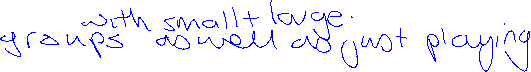 with small + large.
groups as well as just playing